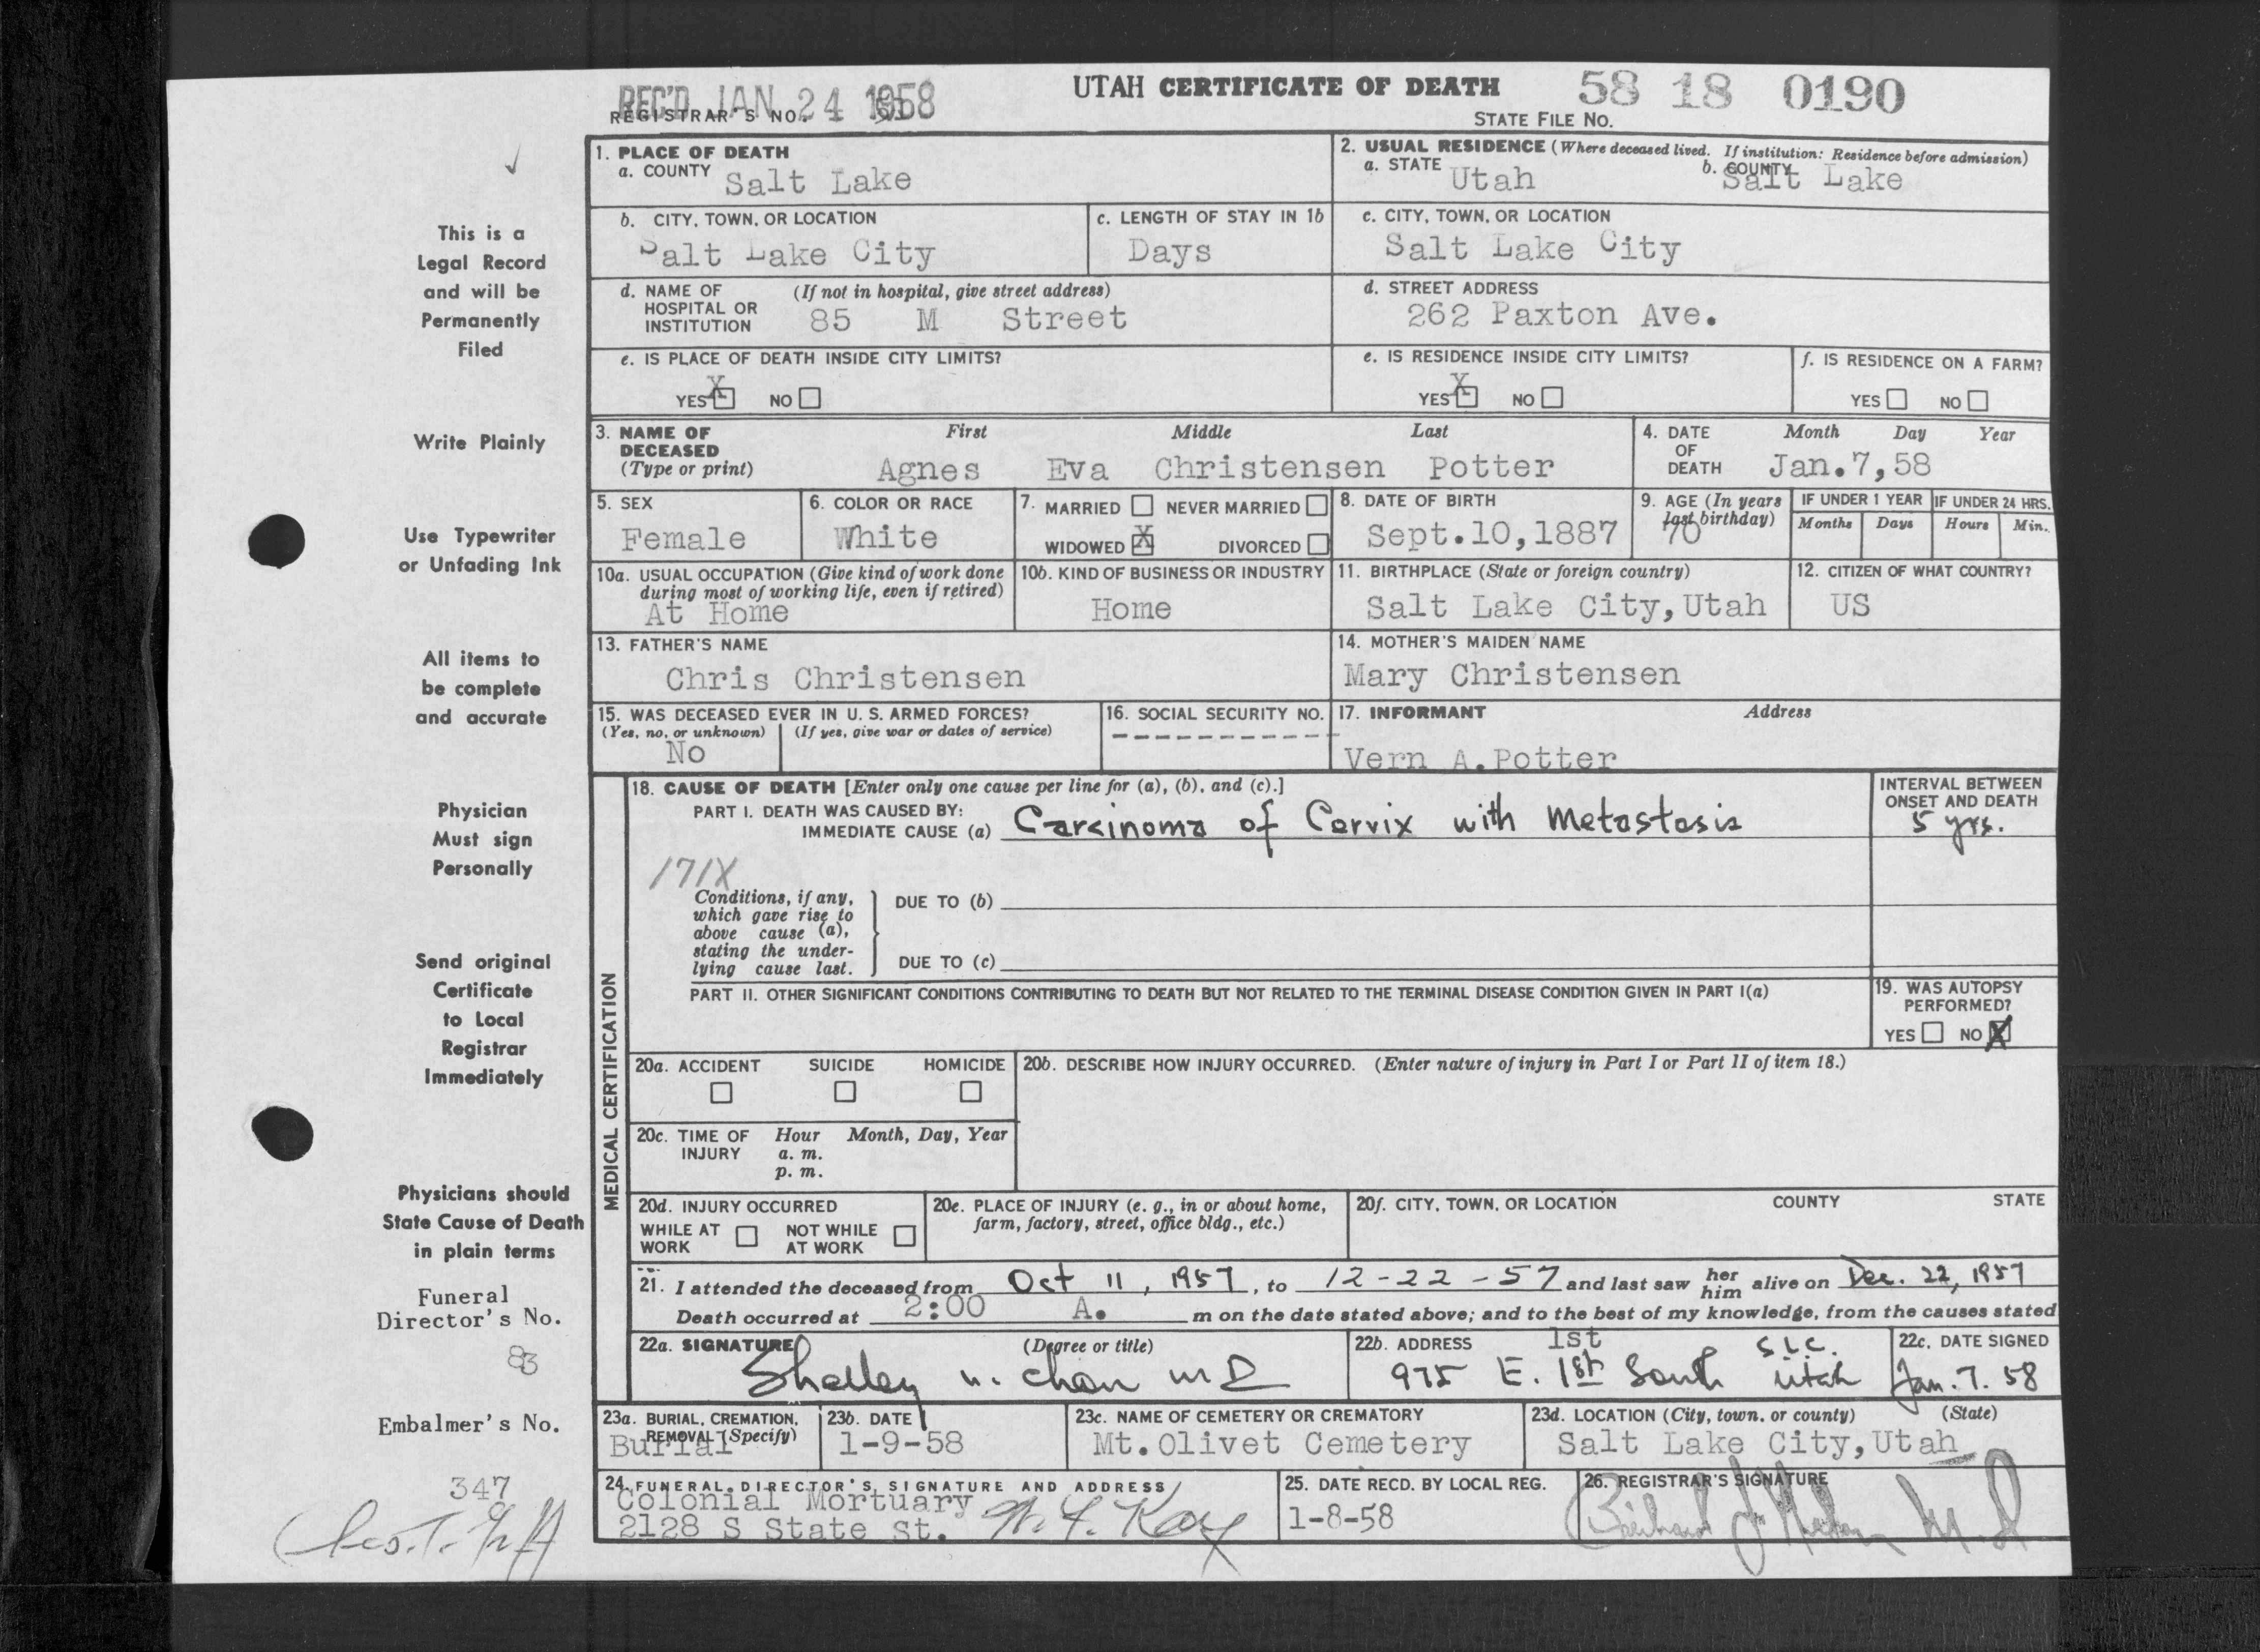 REC'D JAN 24 1958
UTAH CERTIFICATE OF DEATH
58 18 0190
REGISTRAR'S NO.
STATE FILE NO.
1. PLACE OF DEATH
a. COUNTY Salt Lake
2. USUAL RESIDENCE (Where deceased lived. If institution: Residence before admission)
a. STATE Utah b. COUNTY Salt Lake
b. CITY, TOWN, OR LOCATION
Salt Lake City
c. LENGTH OF STAY IN 1b
Days
c. CITY, TOWN, OR LOCATION
Salt Lake City
d. NAME OF HOSPITAL OR INSTITUTION (If not in hospital, give street address)
85 M Street
d. STREET ADDRESS
262 Paxton Ave.
e. IS PLACE OF DEATH INSIDE CITY LIMITS?
YES X NO
e. IS RESIDENCE INSIDE CITY LIMITS?
YES X NO
f. IS RESIDENCE ON A FARM?
YES NO
3. NAME OF DECEASED (Type or print) First Middle Last
Agnes Eva Christensen Potter
4. DATE OF DEATH Month Day Year
Jan.7,58
5. SEX
Female
6. COLOR OR RACE
White
7. MARRIED NEVER MARRIED
WIDOWED X DIVORCED
8. DATE OF BIRTH
Sept.10,1887
9. AGE (In years last birthday)
70
IF UNDER 1 YEAR
Months Days
IF UNDER 24 HRS.
Hours Min.
10a. USUAL OCCUPATION (Give kind of work done during most of working life, even if retired)
At Home
10b. KIND OF BUSINESS OR INDUSTRY
Home
11. BIRTHPLACE (State or foreign country)
Salt Lake City,Utah
12. CITIZEN OF WHAT COUNTRY?
US
13. FATHER'S NAME
Chris Christensen
14. MOTHER'S MAIDEN NAME
Mary Christensen
15. WAS DECEASED EVER IN U. S. ARMED FORCES?
(Yes, no, or unknown) (If yes, give war or dates of service)
No
16. SOCIAL SECURITY NO.
17. INFORMANT Address
Vern A.Potter
MEDICAL CERTIFICATION
18. CAUSE OF DEATH [Enter only one cause per line for (a), (b), and (c).]
PART I. DEATH WAS CAUSED BY:
IMMEDIATE CAUSE (a) Carcinoma of Cervix with Metastasis
INTERVAL BETWEEN ONSET AND DEATH
5 yrs.
171X
Conditions, if any,
which gave rise to
above cause (a),
stating the under-
lying cause last.
DUE TO (b)
DUE TO (c)
PART II. OTHER SIGNIFICANT CONDITIONS CONTRIBUTING TO DEATH BUT NOT RELATED TO THE TERMINAL DISEASE CONDITION GIVEN IN PART I(a)
19. WAS AUTOPSY PERFORMED?
YES NO X
20a. ACCIDENT SUICIDE HOMICIDE
20b. DESCRIBE HOW INJURY OCCURRED. (Enter nature of injury in Part I or Part II of item 18.)
20c. TIME OF INJURY Hour Month, Day, Year
a. m.
p. m.
20d. INJURY OCCURRED
WHILE AT WORK NOT WHILE AT WORK
20e. PLACE OF INJURY (e. g., in or about home, farm, factory, street, office bldg., etc.)
20f. CITY, TOWN, OR LOCATION COUNTY STATE
21. I attended the deceased from Oct 11, 1957, to 12-22-57 and last saw her him alive on Dec. 22, 1957
Death occurred at 2:00 A. m on the date stated above; and to the best of my knowledge, from the causes stated
22a. SIGNATURE (Degree or title)
Shelley n. chan MD
22b. ADDRESS
1st
975 E. 1st South S.L.C. Utah
22c. DATE SIGNED
Jan. 7. 58
23a. BURIAL, CREMATION, REMOVAL (Specify)
Burial
23b. DATE
1-9-58
23c. NAME OF CEMETERY OR CREMATORY
Mt.Olivet Cemetery
23d. LOCATION (City, town, or county) (State)
Salt Lake City,Utah
24. FUNERAL DIRECTOR'S SIGNATURE AND ADDRESS
Colonial Mortuary
2128 S State St.
25. DATE RECD. BY LOCAL REG.
1-8-58
26. REGISTRAR'S SIGNATURE
This is a
Legal Record
and will be
Permanently
Filed
Write Plainly
Use Typewriter
or Unfading Ink
All items to
be complete
and accurate
Physician
Must sign
Personally
Send original
Certificate
to Local
Registrar
Immediately
Physicians should
State Cause of Death
in plain terms
Funeral
Director's No.
83
Embalmer's No.
347